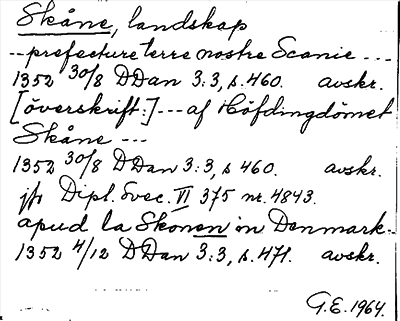 Skåne, landskap
--- prefecture terre nostre Scanie ---
1352 30/8 DDan 3:3, s. 460. avskr.
[överskrift:] --- af Höfdingdömet
Skåne ---
1352 30/8 DDan 3:3, s 460. avskr.
jfr Dipl. Svec. VI 375 nr. 4843.
apud la Skonen in Denmark --
1352 4/12 DDan 3:3, s. 471. avskr.
G.E. 1964.